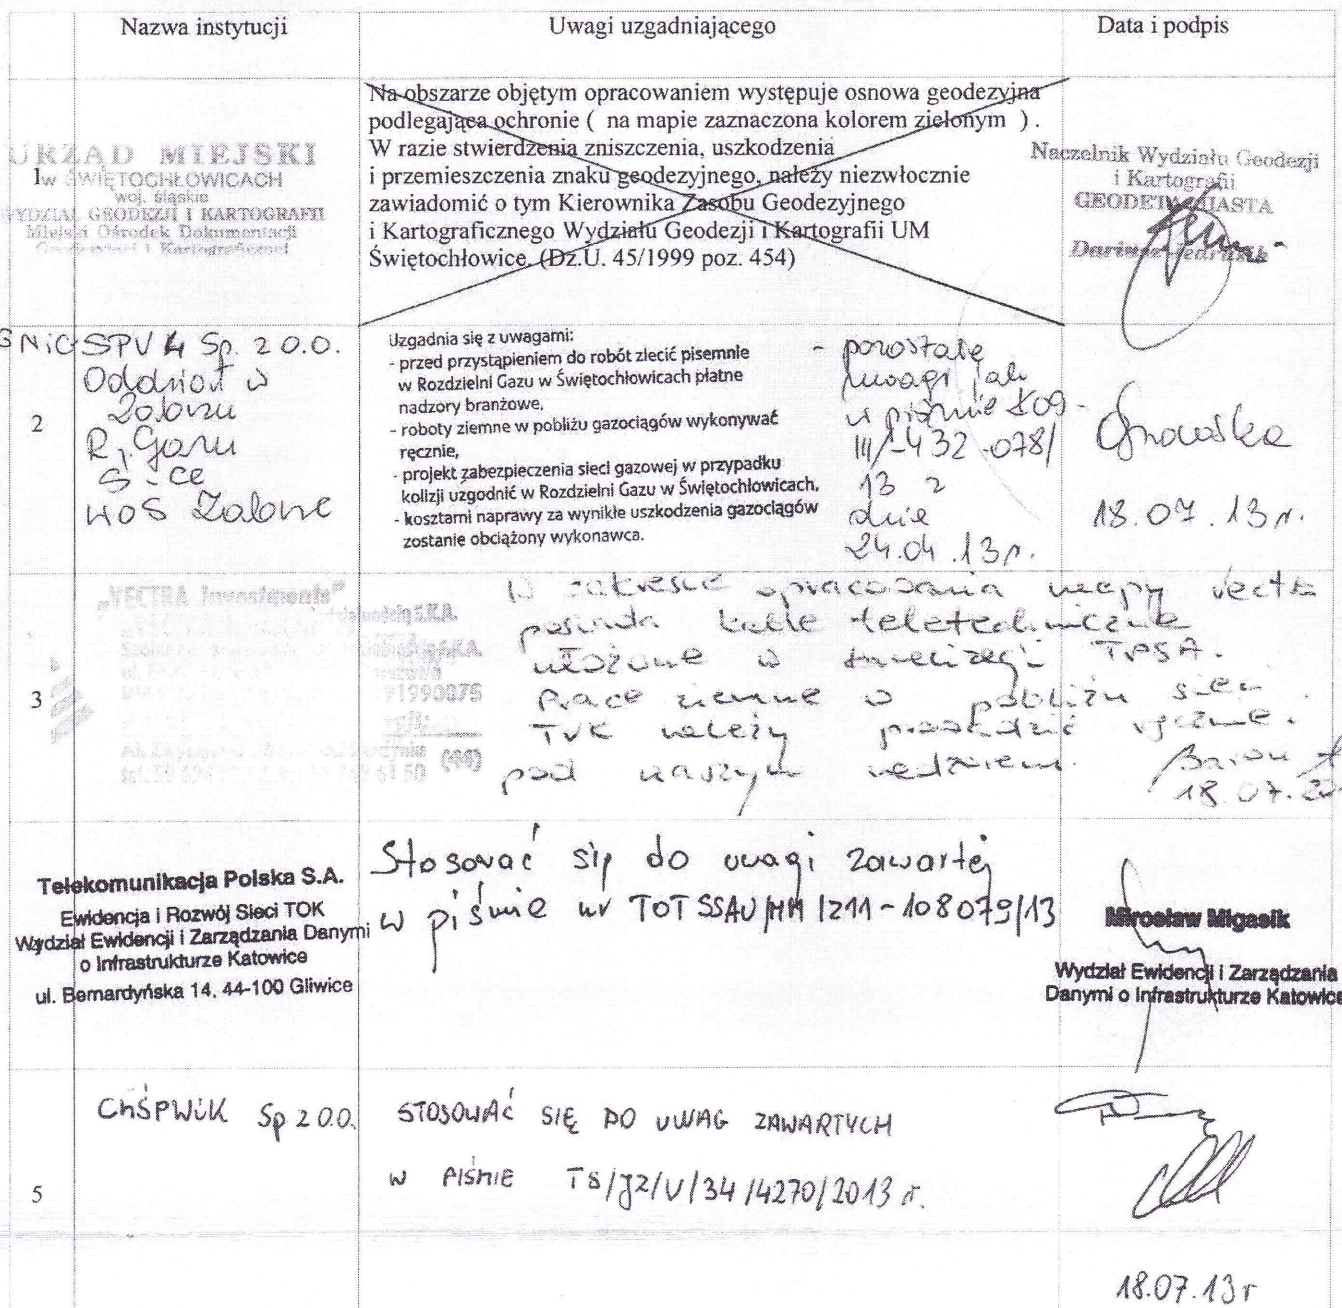 Nazwa instytucji
Uwagi uzgadniającego
Data i podpis
1
URZĄD MIEJSKI
w ŚWIĘTOCHŁOWICACH
woj. śląskie
WYDZIAŁ GEODEZJI I KARTOGRAFII
Miejski Ośrodek Dokumentacji
Geodezyjnej i Kartograficznej
Na obszarze objętym opracowaniem występuje osnowa geodezyjna
podlegająca ochronie ( na mapie zaznaczona kolorem zielonym ) .
W razie stwierdzenia zniszczenia, uszkodzenia
i przemieszczenia znaku geodezyjnego, należy niezwłocznie
zawiadomić o tym Kierownika Zasobu Geodezyjnego
i Kartograficznego Wydziału Geodezji i Kartografii UM
Świętochłowice. (Dz.U. 45/1999 poz. 454)
Naczelnik Wydziału Geodezji
i Kartografii
GEODETA MIASTA
Dariusz
2
SPV 4 Sp. z o.o.
Oddział w
Zabrzu
R. Gazu
S-ce
Zabrze
Uzgadnia się z uwagami:
- przed przystąpieniem do robót zlecić pisemnie
w Rozdzielni Gazu w Świętochłowicach płatne
nadzory branżowe,
- roboty ziemne w pobliżu gazociągów wykonywać
ręcznie,
- projekt zabezpieczenia sieci gazowej w przypadku
kolizji uzgodnić w Rozdzielni Gazu w Świętochłowicach,
- kosztami naprawy za wynikłe uszkodzenia gazociągów
zostanie obciążony wykonawca.
- pozostałe
uwagi jak
w piśmie
III/-432-078/
13 z
dnia
24.04.13r.
18.07.13r.
3
„VECTRA Investments"
S.K.A.
91990075
(44)
W zakresie opracowania mapy Vectra
posiada kable teletechniczne
ułożone w kanalizacji TPSA.
Prace ziemne w pobliżu sieci
TVK należy prowadzić ręcznie
pod naszym nadzorem.
Baron
18.07.20
Telekomunikacja Polska S.A.
Ewidencja i Rozwój Sieci TOK
Wydział Ewidencji i Zarządzania Danymi
o Infrastrukturze Katowice
ul. Bernardyńska 14, 44-100 Gliwice
Stosować się do uwagi zawartej
w piśmie nr TOTSSAU/MM/211-108079/13
Mirosław Migasik
Wydział Ewidencji i Zarządzania
Danymi o Infrastrukturze Katowice
5
ChŚPWiK Sp z o.o.
STOSOWAĆ SIĘ DO UWAG ZAWARTYCH
W PIŚMIE TS/JZ/U/34/4270/2013 r.
18.07.13r